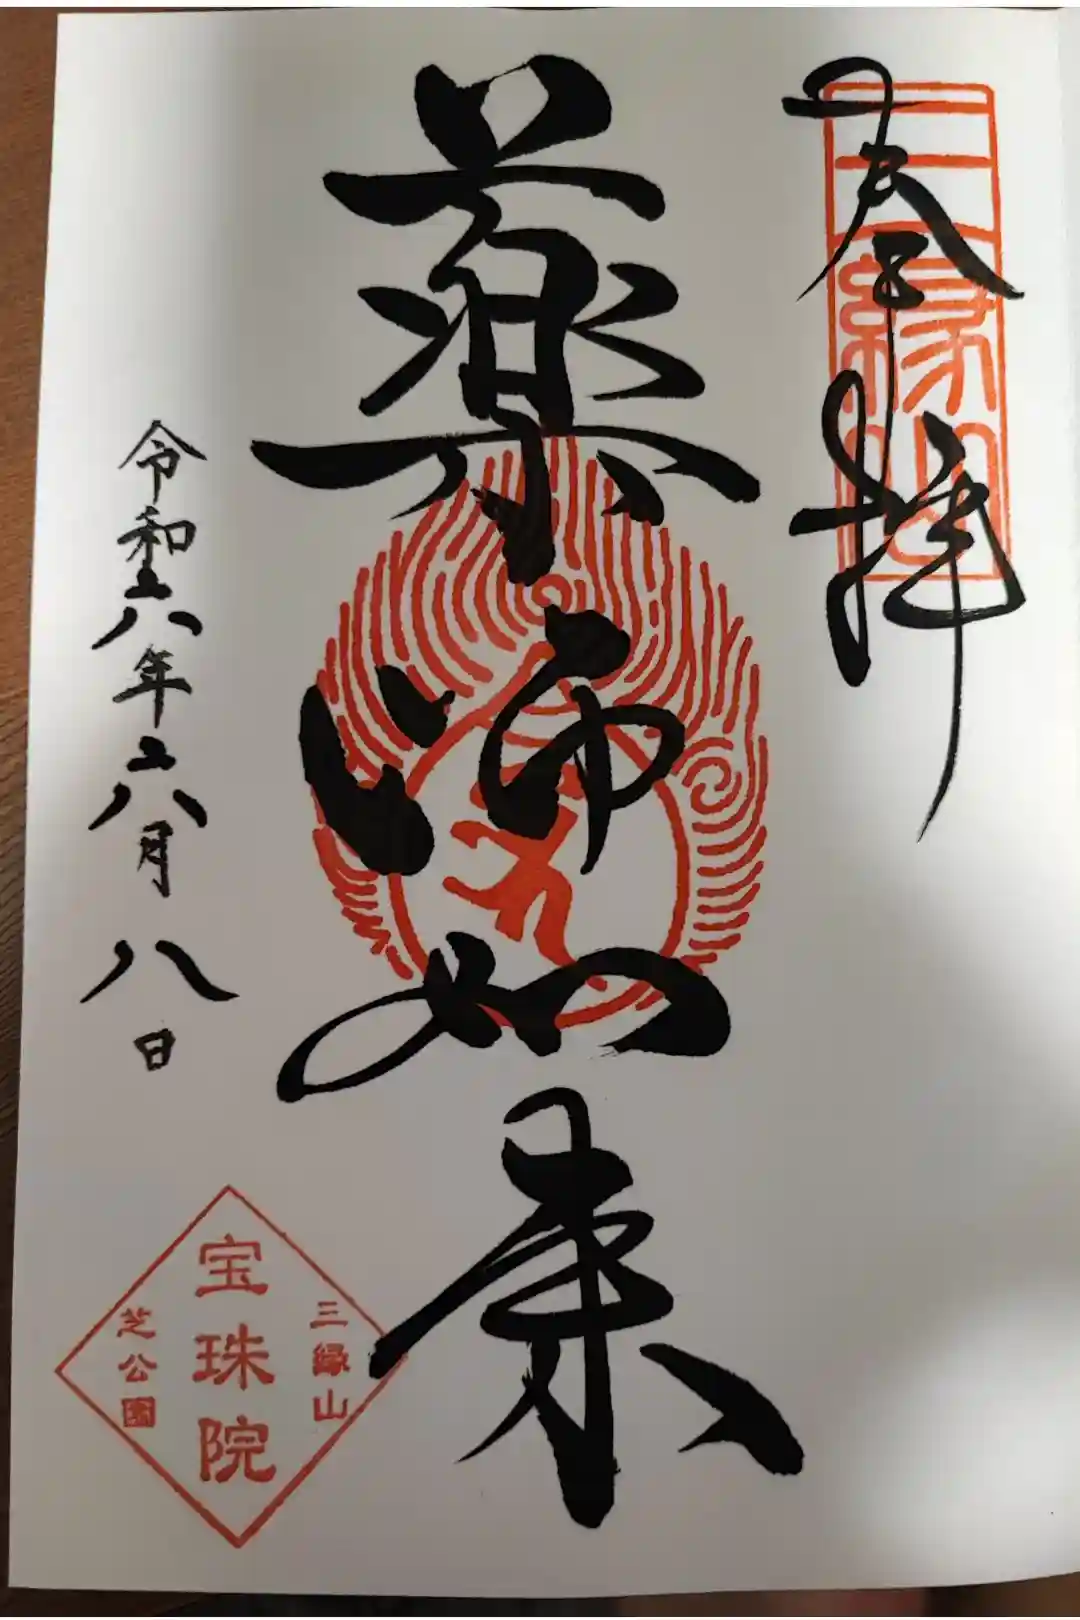 奉拝
三縁山
薬師如来
令和六年六月八日
三縁山
宝珠院
芝公園